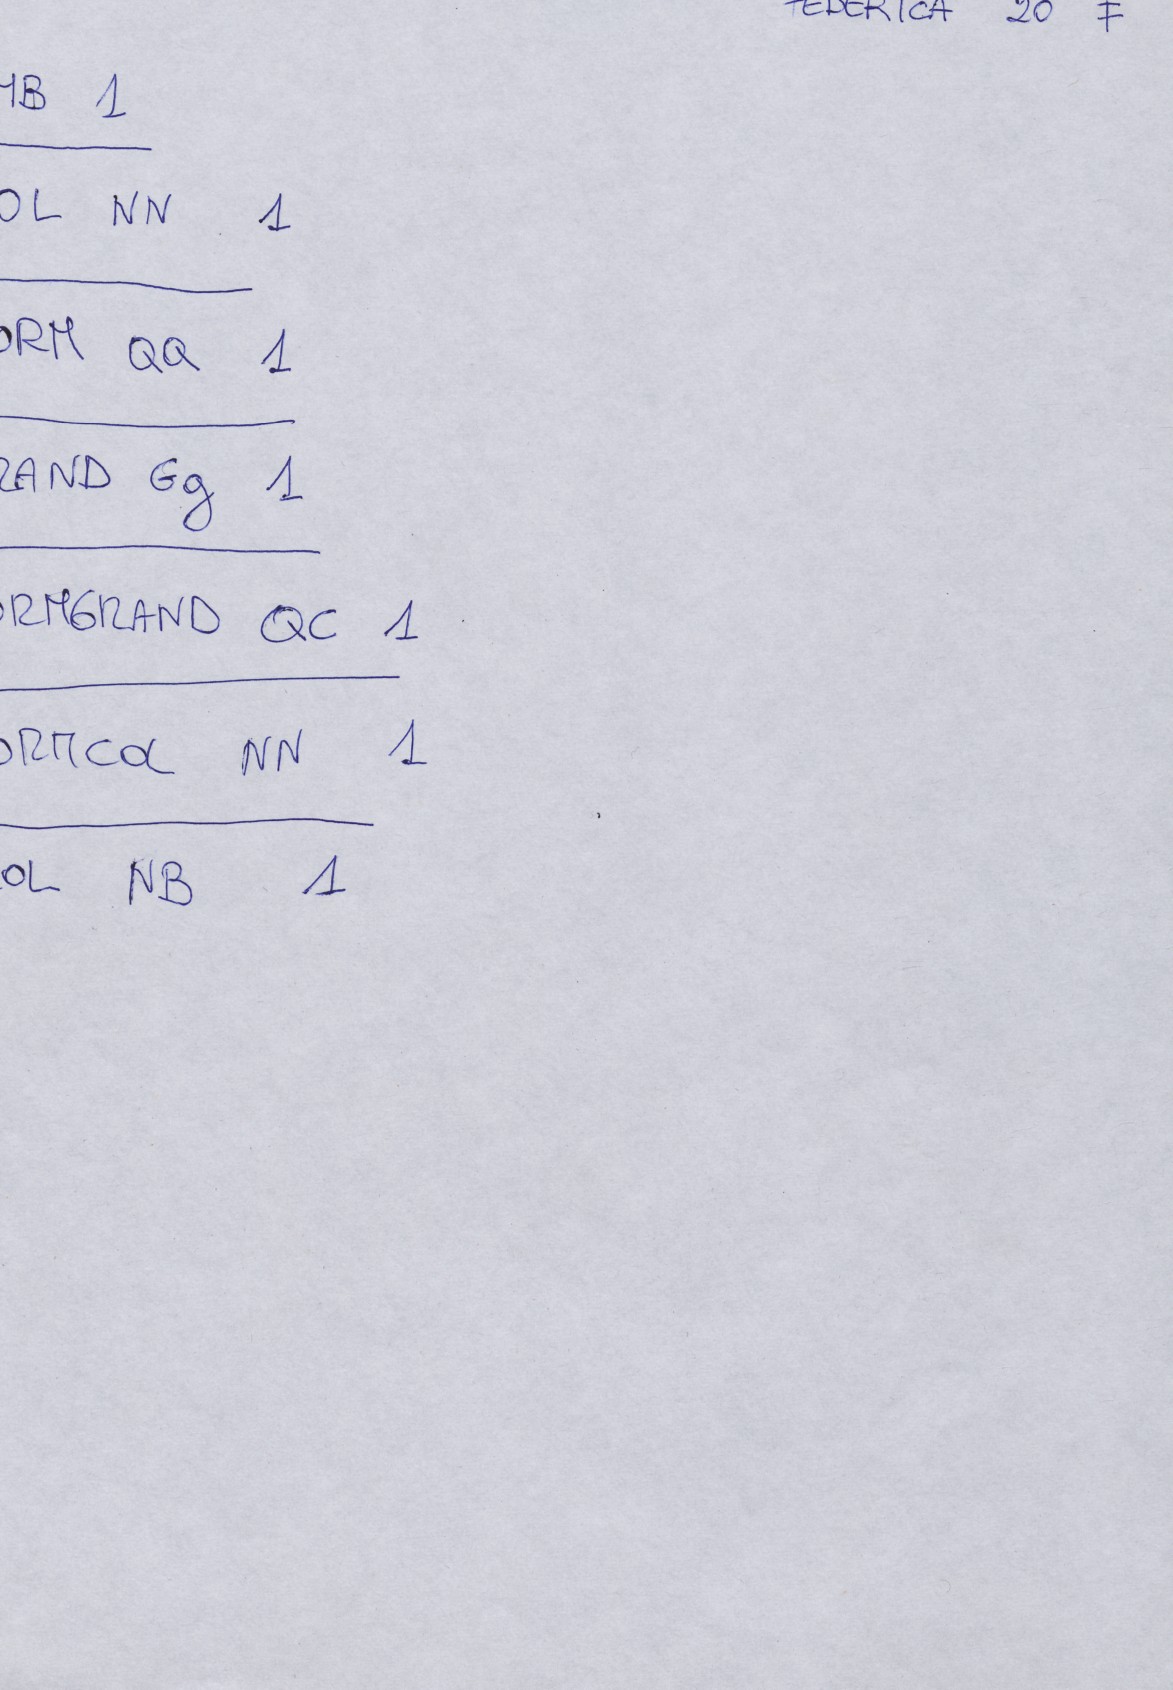 FEDERICA 20 F
MB 1
OL NN 1
ORM QQ 1
RAND Gg 1
ORMGRAND QC 1
ORMCOL NN 1
OL NB 1